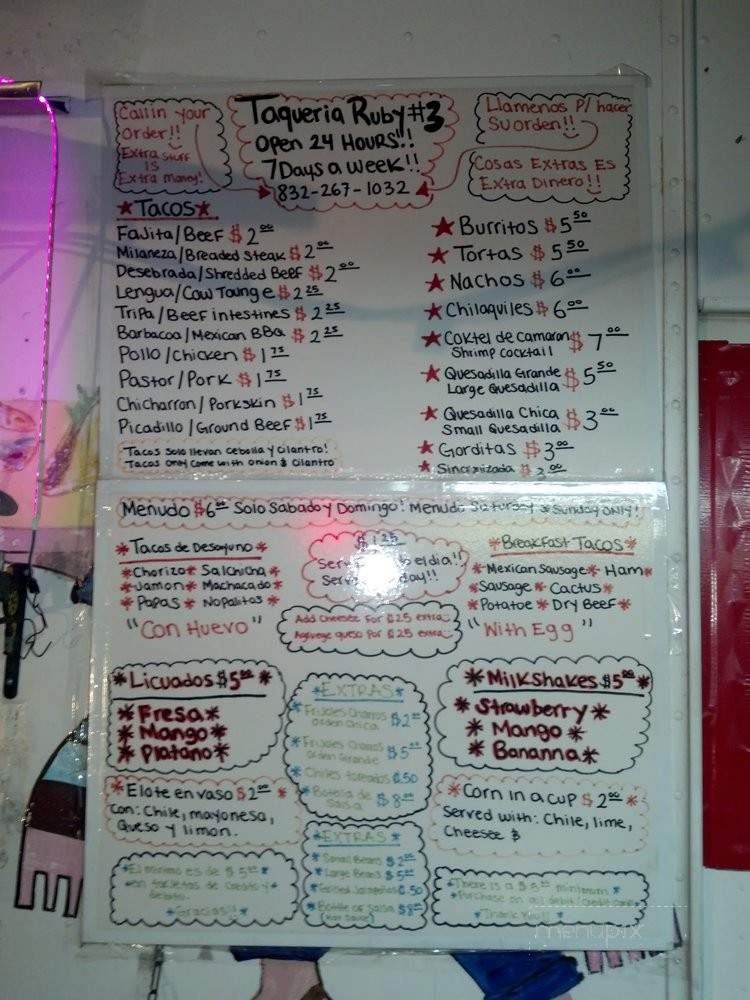 Call in your
Order!!
Extra stuff
IS
Extra money!
Taqueria Ruby #3
Open 24 Hours!!
7 Days a week!!
832-267-1032
Llamenos P/ hacer
Su orden!!
Cosas Extras Es
Extra Dinero!!
Tacos
Fajita/Beef $2.00
Milaneza/Breaded Steak $2.00
Desebrada/Shredded Beef $2.00
Lengua/Cow Tounge $2.25
Tripa/Beef intestines $2.25
Barbacoa/Mexican BBQ $2.25
Pollo/Chicken $1.75
Pastor/Pork $1.75
Chicharron/Porkskin $1.75
Picadillo/Ground Beef $1.75
Tacos solo llevan cebolla y cilantro!
Tacos only come with onion & cilantro
Burritos $5.50
Tortas $5.50
Nachos $6.00
Chilaquiles $6.00
Coktel de camaron $7.00
Shrimp cocktail
Quesadilla Grande $5.50
Large Quesadilla
Quesadilla Chica $3.00
Small Quesadilla
Gorditas $3.00
Sincronizada $3.00
Menudo $6.00 Solo Sabado y Domingo! Menudo Saturday & Sunday ONLY!
Tacos de Desayuno
Chorizo Salchicha
Jamon Machacado
Papas Nopalitos
"Con Huevo"
$1.25
el dia!!
day!!
Add cheesee for ¢25 extra
Agrege queso por ¢25 extra
Breakfast Tacos
Mexican Sausage Ham
Sausage Cactus
Potatoe Dry Beef
"With Egg"
Licuados $5.00
Fresa
Mango
Platano
EXTRAS
Frijoles Charros $2.00
Orden Chica
Frijoles Charros $5.00
Orden Grande
Chiles toreados ¢.50
Botella de $8.00
Salsa
Milkshakes $5.00
Strawberry
Mango
Bananna
Elote en vaso $2.00
Con: Chile, mayonesa,
Queso y limon.
Corn in a cup $2.00
Served with: Chile, lime,
Cheesee &
EXTRAS
Small Beans $2.00
Large Beans $5.00
Grilled Jalapeños ¢.50
Bottle of Salsa $8.00
(Hot Sauce)
El minimo es de $5.00
en tarjetas de credito y
debito.
Gracias!!
There is a $5.00 minimum
Purchase on all debit/credit cards
Thank You!!
menupix